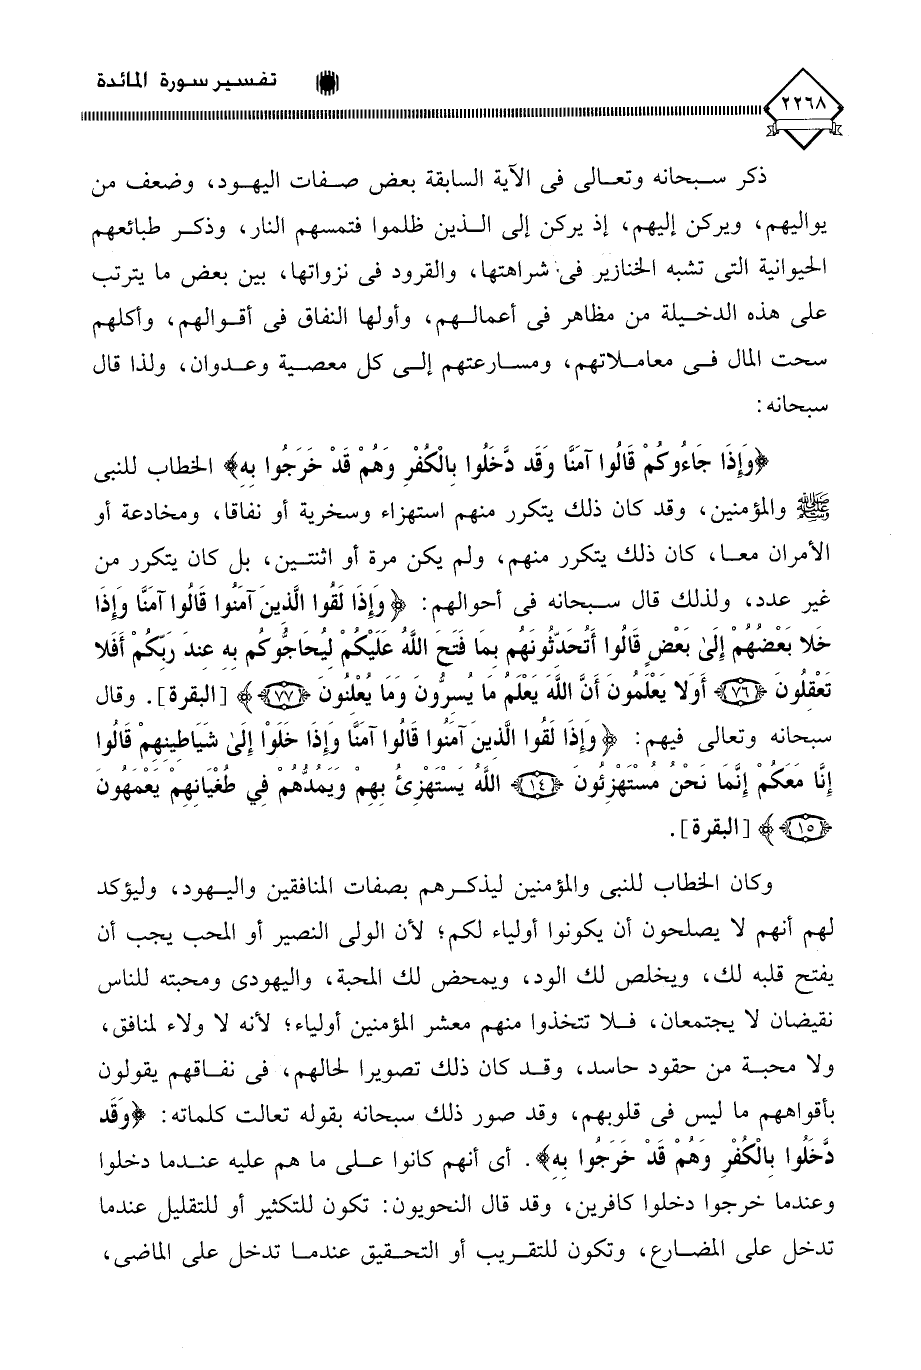 ٢٢٦٨
تفسير سورة المائدة
ذكر سبحانه وتعالى فى الآية السابقة بعض صفات اليهود، وضعف من
يواليهم، ويركن إليهم، إذ يركن إلى الذين ظلموا فتمسهم النار، وذكر طبائعهم
الحيوانية التى تشبه الخنازير فى شراهتها، والقرود فى نزواتها، بين بعض ما يترتب
على هذه الدخيلة من مظاهر فى أعمالهم، وأولها النفاق فى أقوالهم، وأكلهم
سحت المال فى معاملاتهم، ومسارعتهم إلى كل معصية وعدوان، ولذا قال
سبحانه:
﴿وَإِذَا جَاءُوكُمْ قَالُوا آمَنَّا وَقَد دَّخَلُوا بِالْكُفْرِ وَهُمْ قَدْ خَرَجُوا بِهِ﴾ الخطاب للنبى
ﷺ والمؤمنين، وقد كان ذلك يتكرر منهم استهزاء وسخرية أو نفاقا، ومخادعة أو
الأمران معا، كان ذلك يتكرر منهم، ولم يكن مرة أو اثنتين، بل كان يتكرر من
غير عدد، ولذلك قال سبحانه فى أحوالهم: ﴿وَإِذَا لَقُوا الَّذِينَ آمَنُوا قَالُوا آمَنَّا وَإِذَا
خَلا بَعْضُهُمْ إِلَىٰ بَعْضٍ قَالُوا أَتُحَدِّثُونَهُم بِمَا فَتَحَ اللَّهُ عَلَيْكُمْ لِيُحَاجُّوكُم بِهِ عِندَ رَبِّكُمْ أَفَلا
تَعْقِلُونَ ﴿٧٦﴾ أَوَلا يَعْلَمُونَ أَنَّ اللَّهَ يَعْلَمُ مَا يُسِرُّونَ وَمَا يُعْلِنُونَ ﴿٧٧﴾﴾ [البقرة]. وقال
سبحانه وتعالى فيهم: ﴿وَإِذَا لَقُوا الَّذِينَ آمَنُوا قَالُوا آمَنَّا وَإِذَا خَلَوْا إِلَىٰ شَيَاطِينِهِمْ قَالُوا
إِنَّا مَعَكُمْ إِنَّمَا نَحْنُ مُسْتَهْزِئُونَ ﴿١٤﴾ اللَّهُ يَسْتَهْزِئُ بِهِمْ وَيَمُدُّهُمْ فِي طُغْيَانِهِمْ يَعْمَهُونَ
﴿١٥﴾﴾ [البقرة].
وكان الخطاب للنبى والمؤمنين ليذكرهم بصفات المنافقين واليهود، وليؤكد
لهم أنهم لا يصلحون أن يكونوا أولياء لكم؛ لأن الولى النصير أو المحب يجب أن
يفتح قلبه لك، ويخلص لك الود، ويمحض لك المحبة، واليهودى ومحبته للناس
نقيضان لا يجتمعان، فلا تتخذوا منهم معشر المؤمنين أولياء؛ لأنه لا ولاء لمنافق،
ولا محبة من حقود حاسد، وقد كان ذلك تصويرا لحالهم، فى نفاقهم يقولون
بأقواههم ما ليس فى قلوبهم، وقد صور ذلك سبحانه بقوله تعالت كلماته: ﴿وَقَد
دَّخَلُوا بِالْكُفْرِ وَهُمْ قَدْ خَرَجُوا بِهِ﴾. أى أنهم كانوا على ما هم عليه عندما دخلوا
وعندما خرجوا دخلوا كافرين، وقد قال النحويون: تكون للتكثير أو للتقليل عندما
تدخل على المضارع، وتكون للتقريب أو التحقيق عندما تدخل على الماضى،